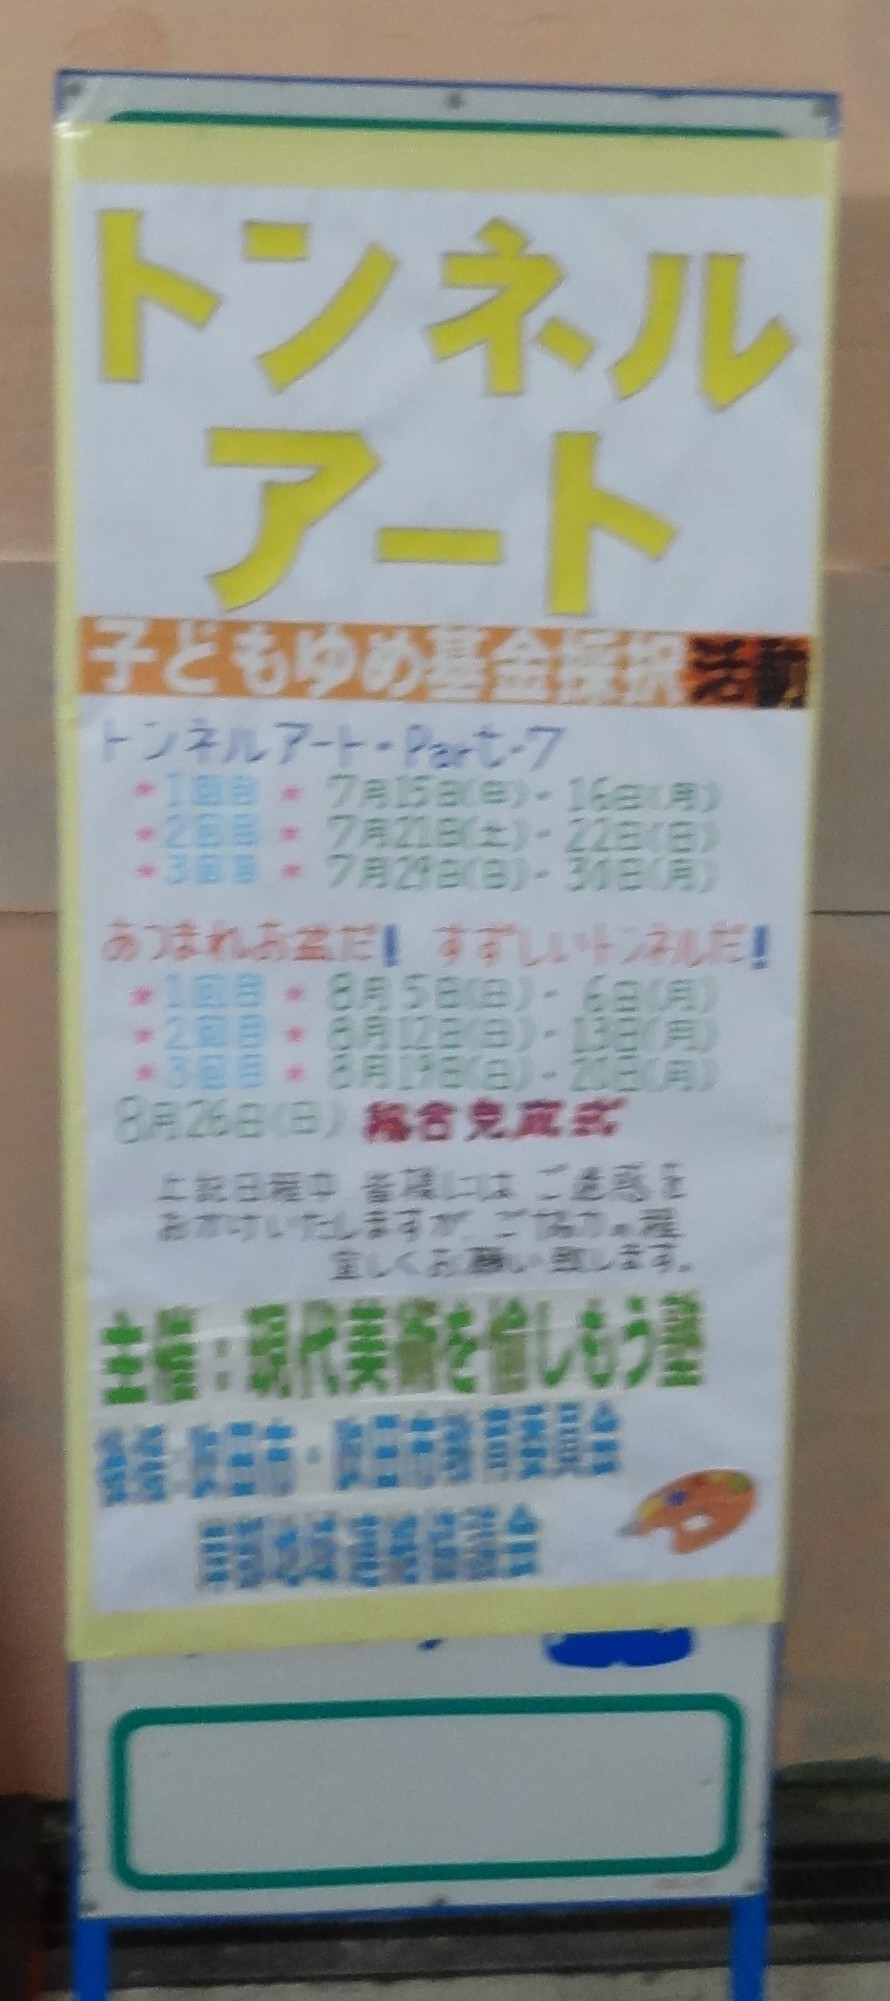 トンネル
アート
子どもゆめ基金採択活動
トンネルアート・Part-7
★1回目 ★ 7月15日(日)- 16日(月)
★2回目 ★ 7月21日(土)- 22日(日)
★3回目 ★ 7月29日(日)- 30日(月)
あつまれお盆だ! すずしいトンネルだ!
★1回目 ★ 8月 5日(日)- 6日(月)
★2回目 ★ 8月12日(日)- 13日(月)
★3回目 ★ 8月19日(日)- 20日(月)
8月26日(日) 総合完成式
上記日程中 皆様には ご迷惑を
おかけいたしますが、ご協力の程
宜しくお願い致します。
主催:現代美術を愉しもう塾